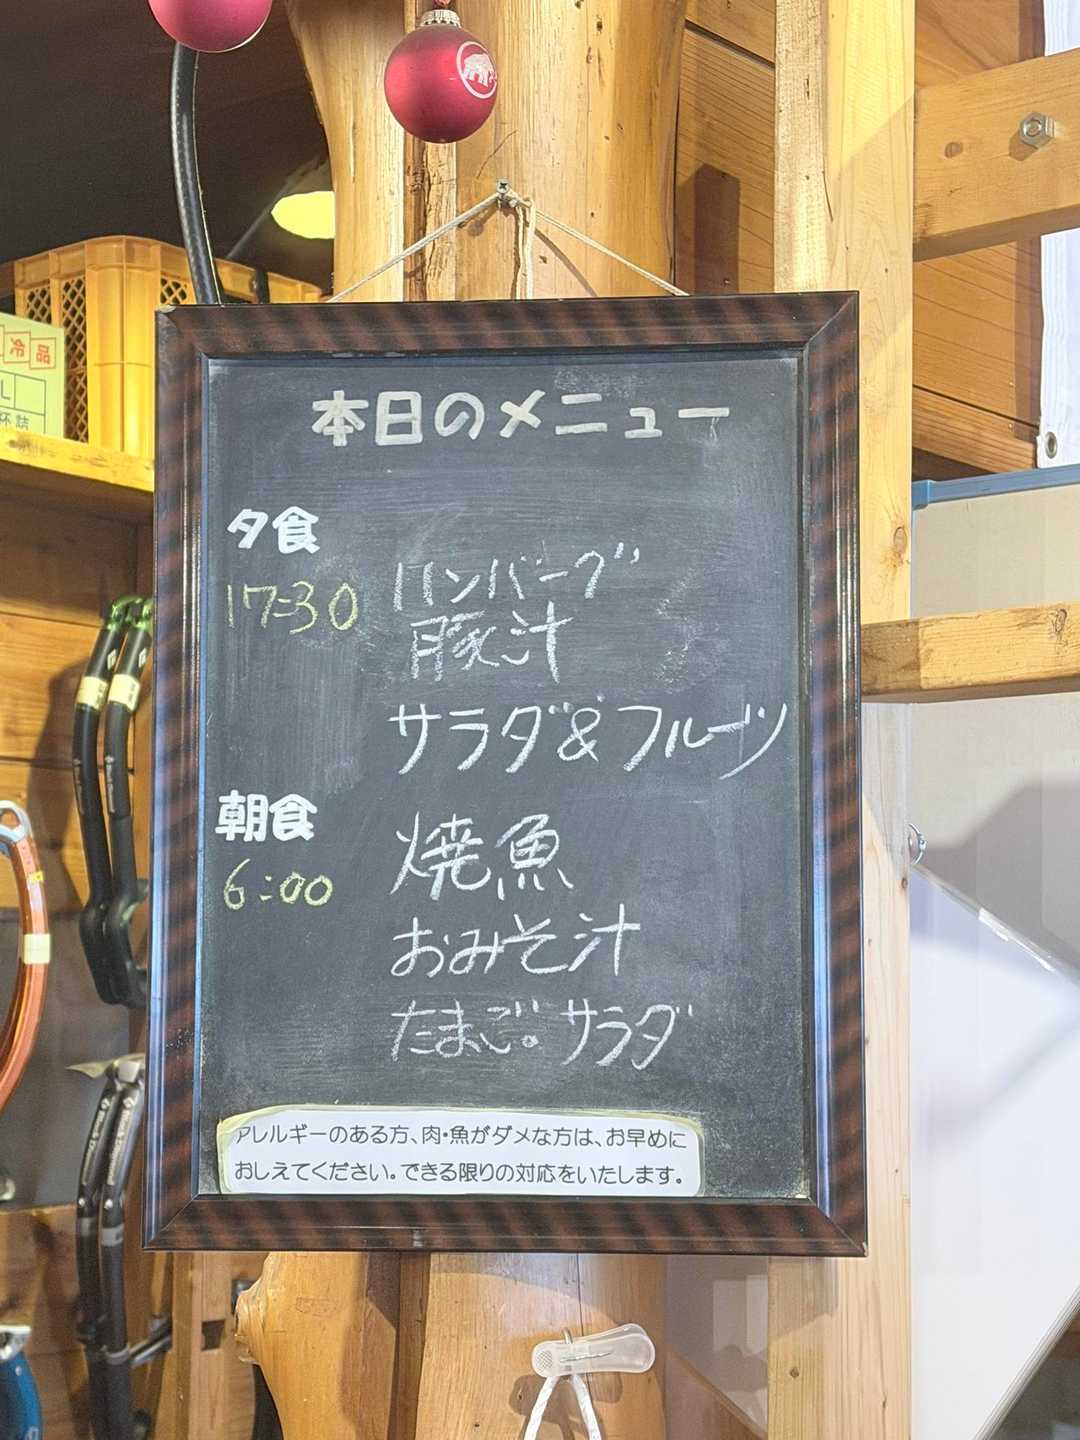 本日のメニュー
夕食
17:30
ハンバーグ
豚汁
サラダ&フルーツ
朝食
6:00
焼魚
おみそ汁
たまご。サラダ
アレルギーのある方、肉・魚がダメな方は、お早めに
おしえてください。できる限りの対応をいたします。